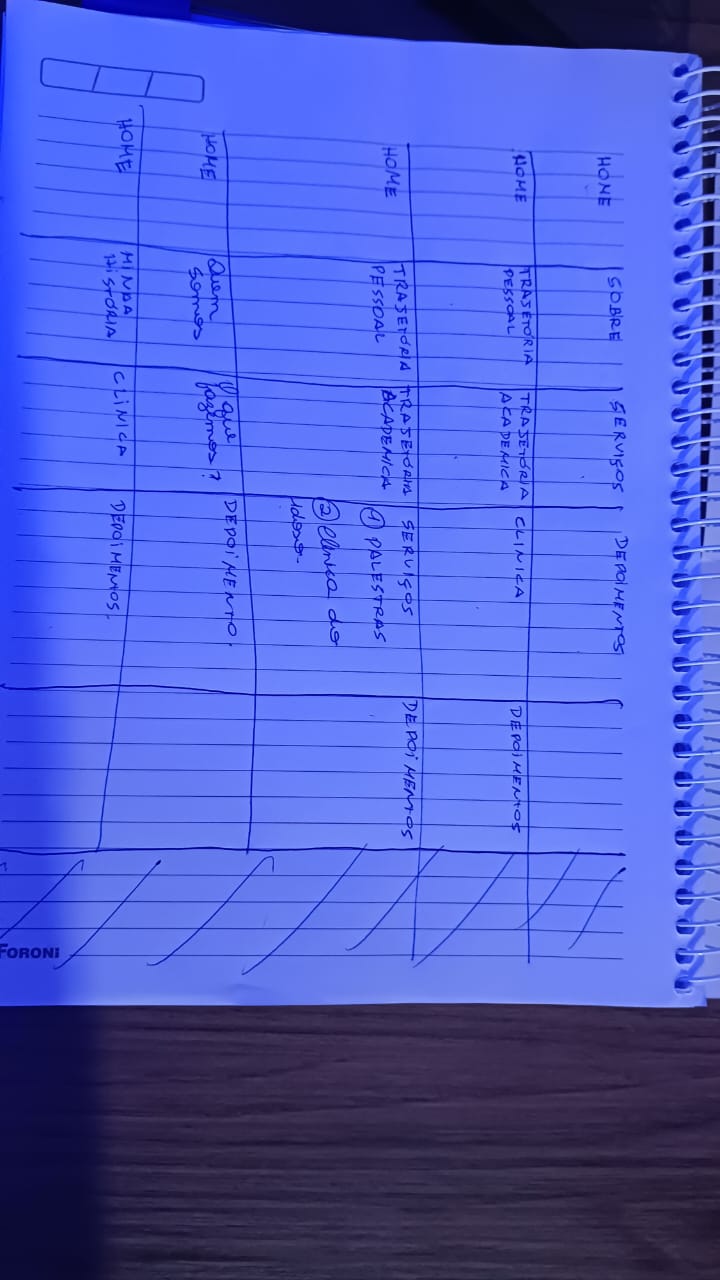 HOME SOBRE SERVIÇOS DEPOIMENTOS
HOME TRAJETÓRIA PESSOAL TRAJETÓRIA ACADEMICA CLINICA DEPOIMENTOS
HOME TRAJETÓRIA PESSOAL TRAJETÓRIA ACADEMICA SERVIÇOS DEPOIMENTOS
① PALESTRAS
② Clínica do
idoso.
HOME Quem somos O que fazemos? DEPOIMENTO.
HOME MINHA HISTÓRIA CLINICA DEPOIMENTOS.
FORONI